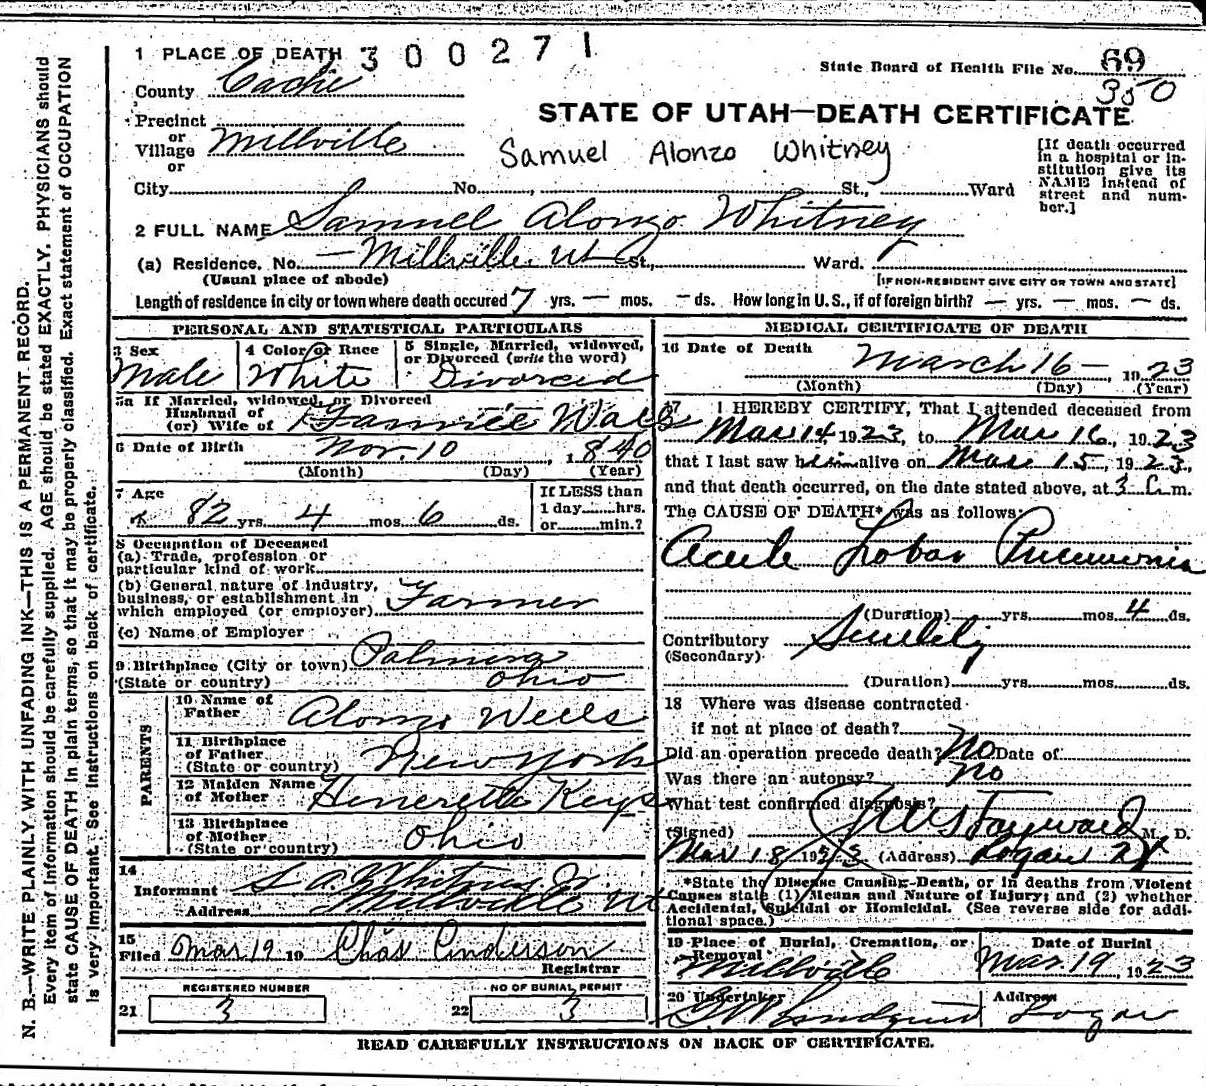 1 PLACE OF DEATH 300271
State Board of Health File No. 69
350
County Cache
STATE OF UTAH—DEATH CERTIFICATE
Precinct
or
Village Millville
or
Samuel Alonzo Whitney
[If death occurred
in a hospital or in-
stitution give its
NAME instead of
street and num-
ber.]
City No. St., Ward
2 FULL NAME Samuel Alonzo Whitney
(a) Residence. No. — Millville Ut St., Ward.
(Usual place of abode) [IF NON-RESIDENT GIVE CITY OR TOWN AND STATE]
Length of residence in city or town where death occured 7 yrs. — mos. — ds. How long in U. S., if of foreign birth? — yrs. — mos. — ds.
PERSONAL AND STATISTICAL PARTICULARS
3 Sex
Male
4 Color or Race
White
5 Single, Married, widowed,
or Divorced (write the word)
Divorced
5a If Married, widowed, or Divorced
Husband of
(or) Wife of Fannie
6 Date of Birth Nov. 10, 1840
(Month) (Day) (Year)
7 Age
82 yrs. 4 mos. 6 ds.
If LESS than
1 day hrs.
or min.?
8 Occupation of Deceased
(a) Trade, profession or
particular kind of work
(b) General nature of industry,
business, or establishment in
which employed (or employer) Farmer
(c) Name of Employer
9 Birthplace (City or town)
(State or country) Ohio
PARENTS
10 Name of
Father Alonzo Wells
11 Birthplace
of Father
(State or country) New York
12 Maiden Name
of Mother Henerette Keys
13 Birthplace
of Mother
(State or country) Ohio
14
Informant S. A. Whitney Jr
Address Millville Ut
15
Filed Mar. 19 19 Chas Anderson
Registrar
REGISTERED NUMBER
21 3
NO OF BURIAL PERMIT
22 3
MEDICAL CERTIFICATE OF DEATH
16 Date of Death March 16 —, 1923
(Month) (Day) (Year)
17 I HEREBY CERTIFY, That I attended deceased from
Mar 14 1923, to Mar 16, 1923
that I last saw him alive on Mar 15, 1923,
and that death occurred, on the date stated above, at 3 m.
The CAUSE OF DEATH* was as follows:
Acute Lobar Pneumonia
(Duration) yrs. mos. 4 ds.
Contributory Senility
(Secondary)
(Duration) yrs. mos. ds.
18 Where was disease contracted
if not at place of death?
Did an operation precede death? No Date of
Was there an autopsy? no
What test confirmed diagnosis?
(Signed) Hayward M. D.
Mar 18/1923 (Address) Logan Ut
*State the Disease Causing Death, or in deaths from Violent
Causes state (1) Means and Nature of Injury; and (2) whether
Accidental, Suicidal or Homicidal. (See reverse side for addi-
tional space.)
19 Place of Burial, Cremation, or
Removal
Millville
Date of Burial
Mar. 19 1923
20 Undertaker
Lundquist
Address
Logan
READ CAREFULLY INSTRUCTIONS ON BACK OF CERTIFICATE.
N. B.—WRITE PLAINLY WITH UNFADING INK—THIS IS A PERMANENT RECORD.
Every item of information should be carefully supplied. AGE should be stated EXACTLY. PHYSICIANS should
state CAUSE OF DEATH in plain terms, so that it may be properly classified. Exact statement of OCCUPATION
is very important. See instructions on back of certificate.